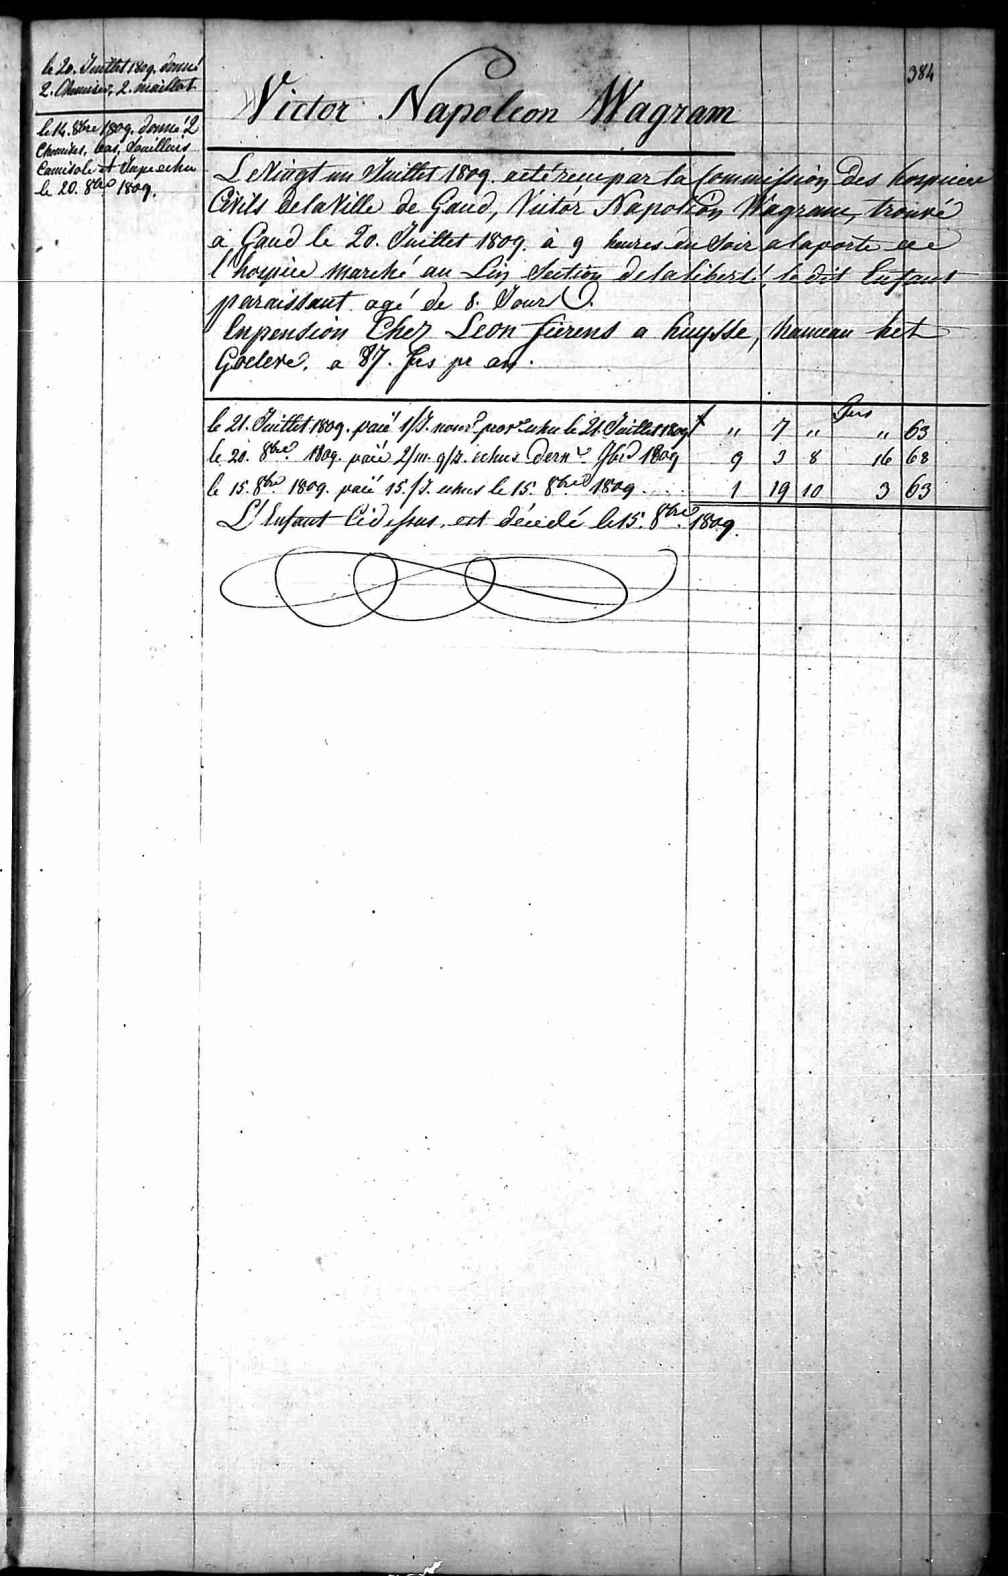 384
le 20. Juillet 1809. donné
2. Chemises, 2. maillot
le 14. 8bre 1809. donné 2
Chemises, bas, Souilliers
Camisole et Jupe echu
le 20. 8bre 1809.
Victor Napoleon Wagram
Le Vingt un Juillet 1809. a eté recu par la Commission des hospices
Civils de la Ville de Gand, Victor Napoleon Wagram, trouvé
à Gand le 20. Juillet 1809. à 9 heures du Soir a la porte de
l'hospice marché au Lin, Section de la liberté, le dit Enfant
paraissant agé de 8. Jours.
En pension Chez Leon fierens a huysse, hameau het
Goelere. a 87. frs pr an.
frs
le 21. Juillet 1809. paié 1/J. nour. prov. echu le 21. Juillet 1809 f " 7 " " 63
le 20. 8bre 1809. paié 2/m. 9/J. echus dern. 7bre 1809 9 3 8 16 68
le 15. 8bre 1809. paié 15./J. echus le 15. 8bre 1809. 1 19 10 3 63
L'Enfant Cidessus, est décédé le 15. 8bre 1809.